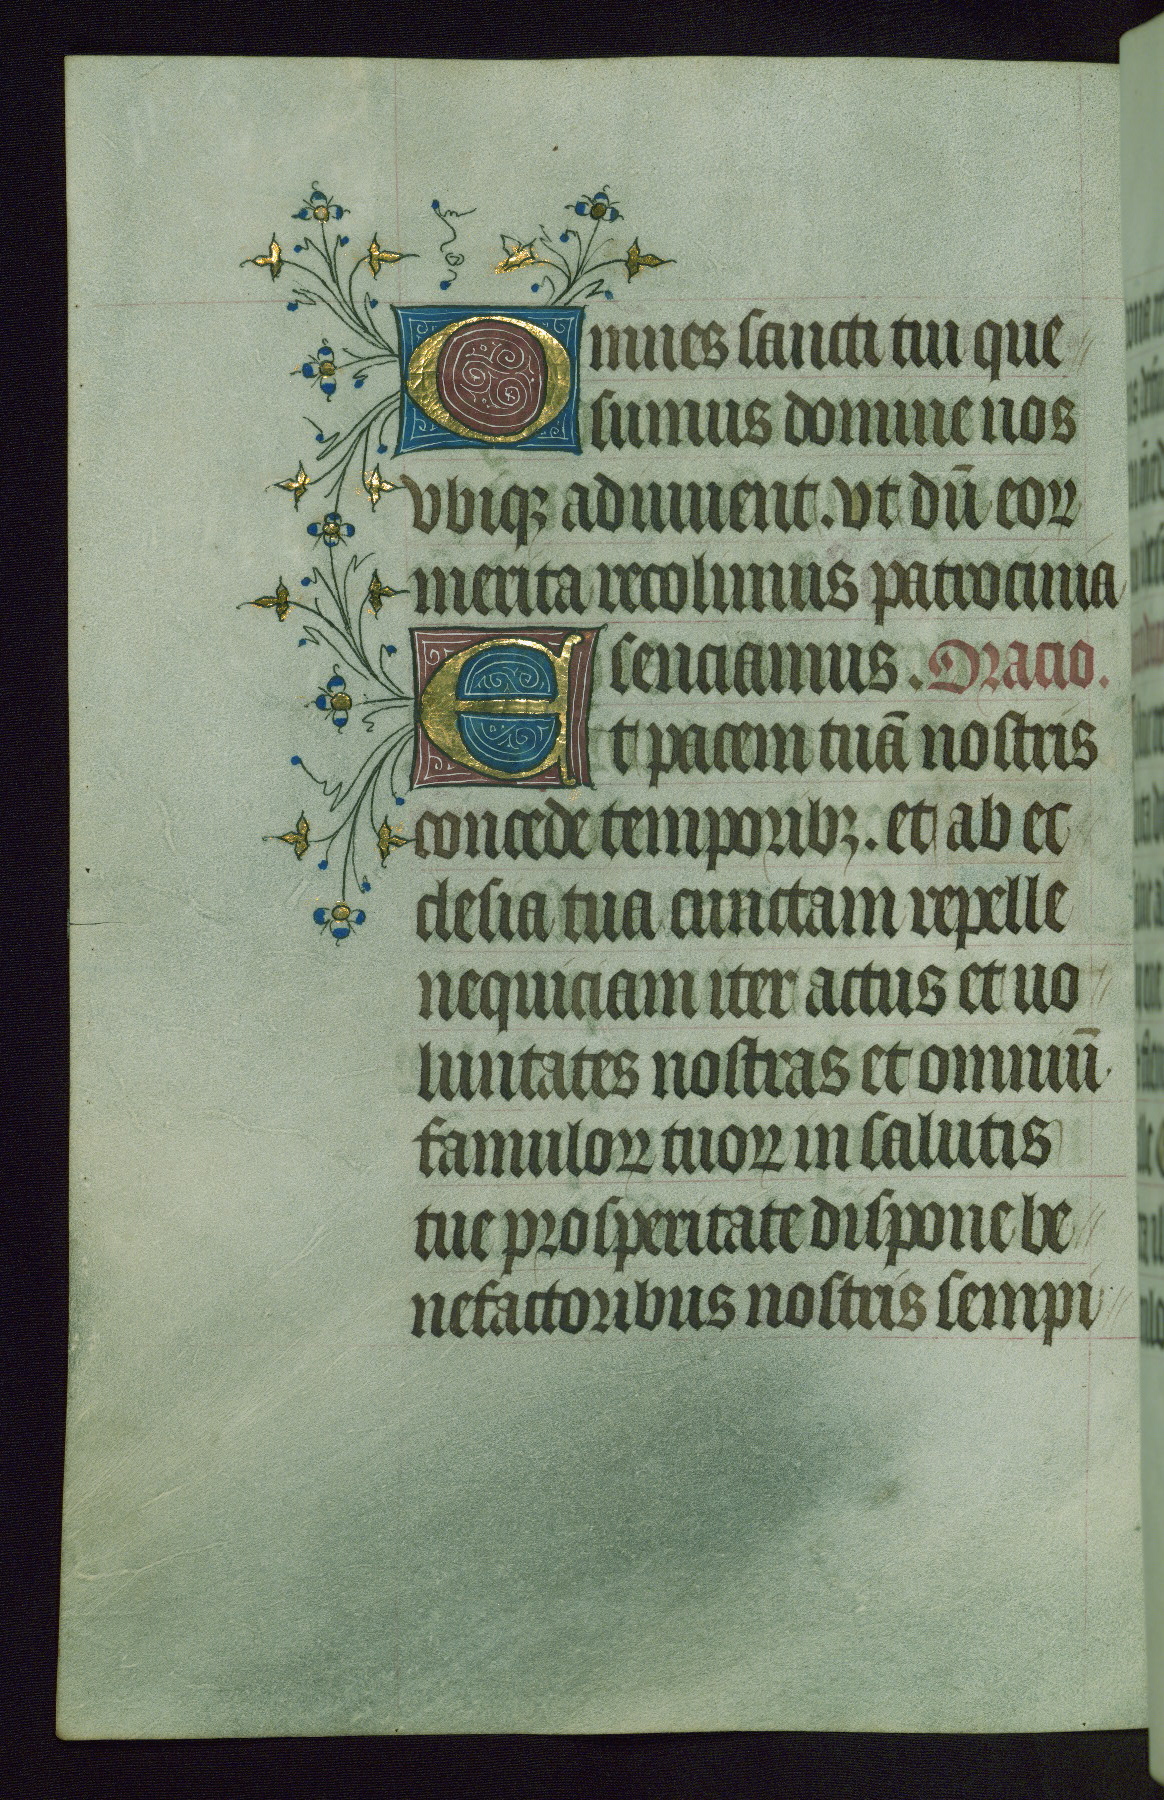 Omnes sancti tui que
sumus domine nos
vbiqꝫ adiuuent. vt dū eoꝝ
merita recolimus patrocinia
senciamus. Oracio.
Et pacem tuā nostris
concede temporibꝫ. et ab ec
clesia tua cunctam repelle
nequiciam iter actus et uo
luntates nostras et omniū
famuloꝝ tuoꝝ in salutis
tue prosperitate dispone be
nefactoribus nostris sempi